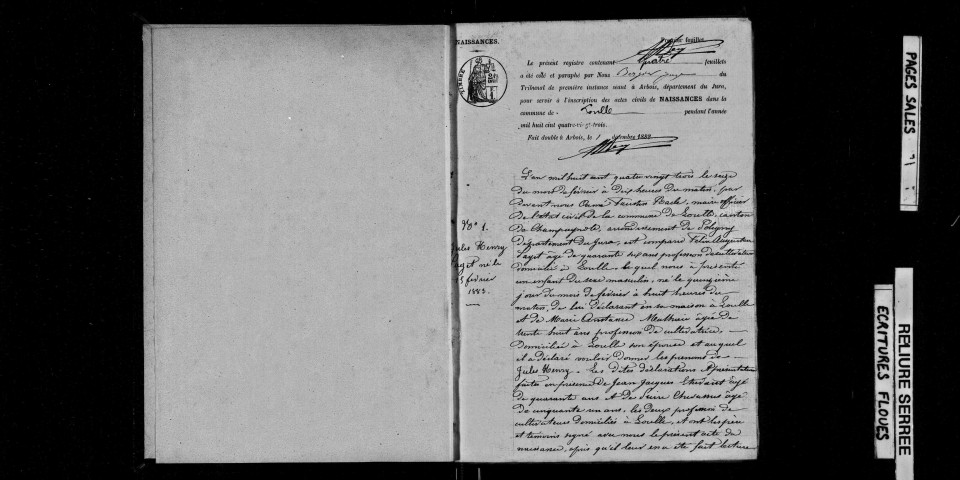 NAISSANCES.
feuillet.
Le présent registre contenant quatre feuillets
a été coté et paraphé par Nous du
Tribunal de première instance séant à Arbois, département du Jura,
pour servir à l'inscription des actes civils de NAISSANCES dans la
commune de Loulle pendant l'année
mil huit cent quatre-vingt-trois.
Fait double à Arbois, le 1 décembre 1882
No 1.
Jules Henry
Paget né le
15 février
1883.
L'an mil huit cent quatre vingt trois le seize
du mois de février à dix heures du matin, par
devant nous Aimé Faustin maire officier
de l'état civil de la commune de Loulle, canton
de Champagnole, arrondissement de Poligny
département du Jura, est comparu Félix Augustin
Paget âgé de quarante six ans profession de cultivateur
domicilié à Loulle, lequel nous a présenté
un enfant du sexe masculin, né le quinzième
jour du mois de février à huit heures du
matin, de lui déclarant en sa maison à Loulle
et de Marie Constance âgée de
trente huit ans profession de cultivatrice,
domiciliée à Loulle son épouse et auquel
il a déclaré vouloir donner les prénoms de
Jules Henry. Les dites déclarations et présentation
faites en présence de Jean Jacques âgé
de quarante ans et de Pierre Chevassus âgé
de cinquante un ans, les deux profession de
cultivateurs domiciliés à Loulle, et ont les père
et témoins signé avec nous le présent acte de
naissance, après qu'il leur en a été fait lecture
PAGES SALES
ECRITURES FLOUES
RELIURE SERREE